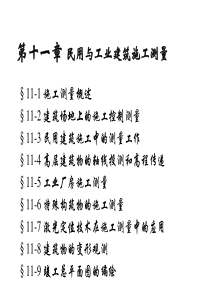 第十一章 民用与工业建筑施工测量
§11-1 施工测量概述
§11-2 建筑场地上的施工控制测量
§11-3 民用建筑施工中的测量工作
§11-4 高层建筑物的轴线投测和高程传递
§11-5 工业厂房施工测量
§11-6 特殊构筑物的施工测量
§11-7 激光定位技术在施工测量中的应用
§11-8 建筑物的变形观测
§11-9 竣工总平面图的编绘